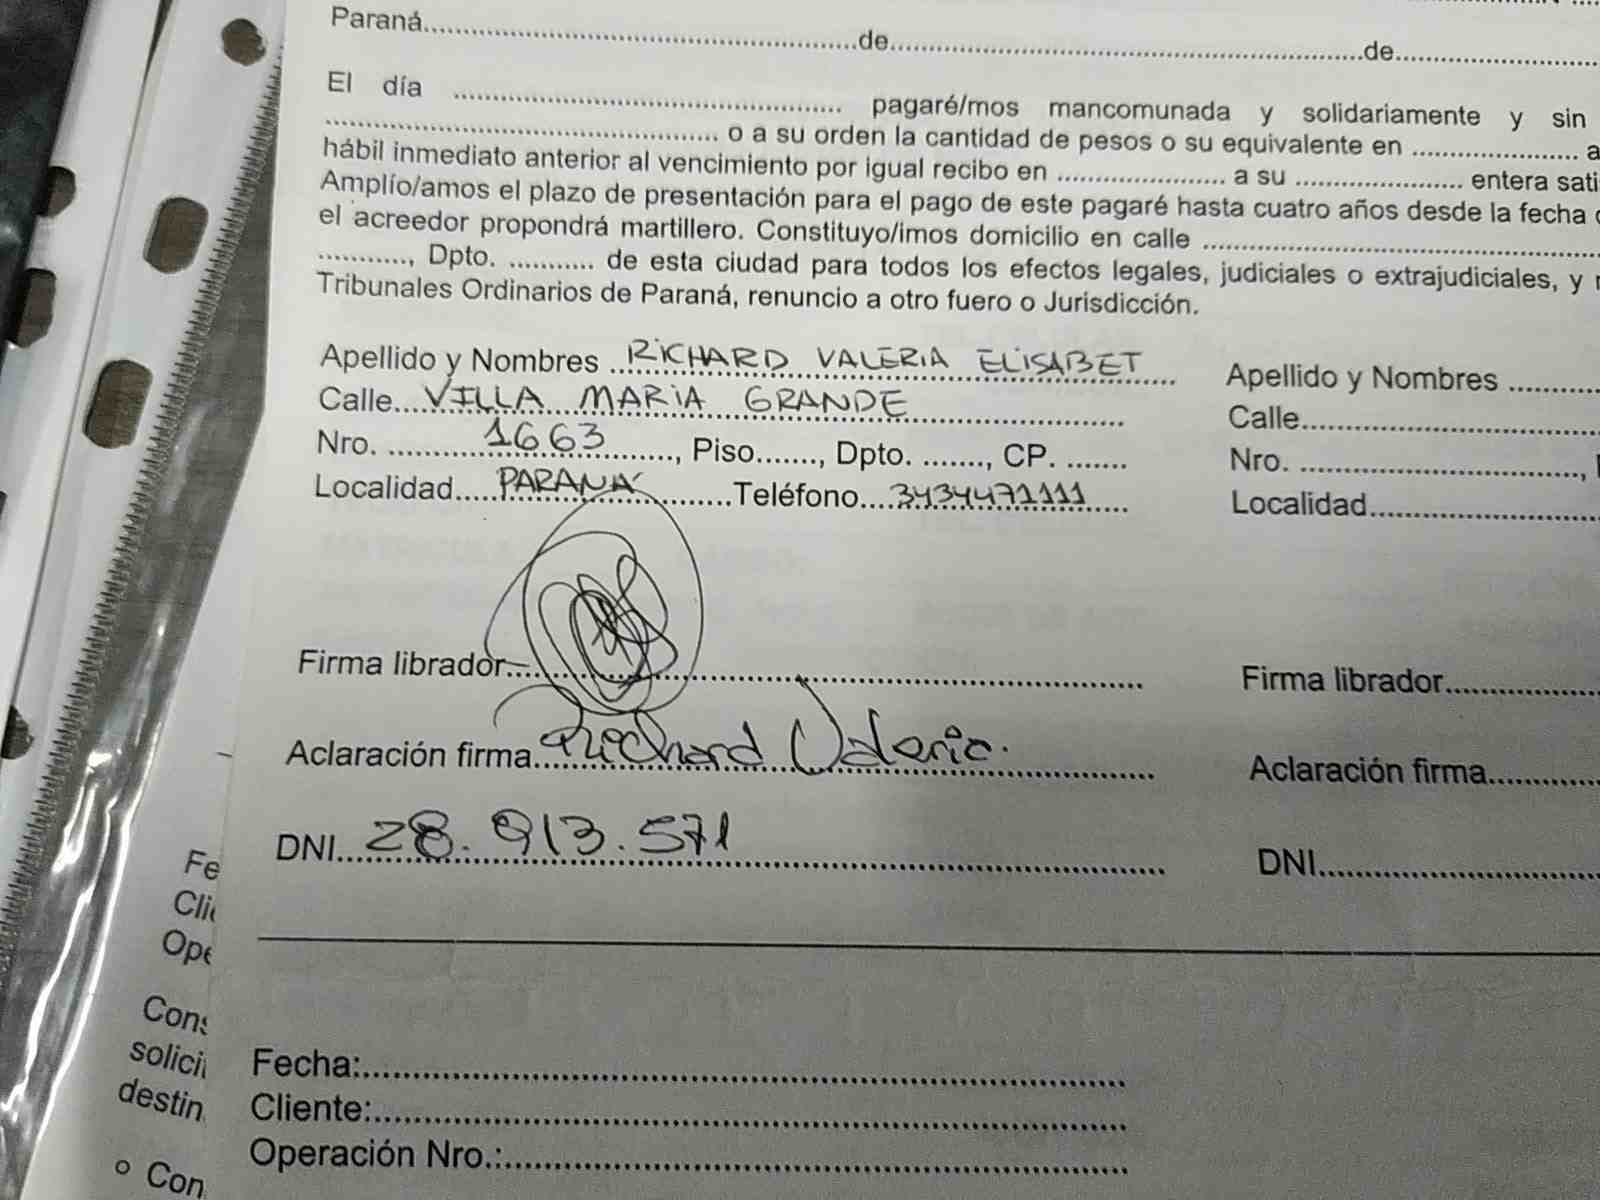 Paraná..............................de..............................de....................
El día .............................. pagaré/mos mancomunada y solidariamente y sin
.............................. o a su orden la cantidad de pesos o su equivalente en .................... a
hábil inmediato anterior al vencimiento por igual recibo en .................... a su .................... entera sati
Amplío/amos el plazo de presentación para el pago de este pagaré hasta cuatro años desde la fecha
el acreedor propondrá martillero. Constituyo/imos domicilio en calle ..............................
..........., Dpto. ........... de esta ciudad para todos los efectos legales, judiciales o extrajudiciales, y
Tribunales Ordinarios de Paraná, renuncio a otro fuero o Jurisdicción.
Apellido y Nombres RICHARD VALERIA ELISABET
Calle VILLA MARIA GRANDE
Nro. 1663, Piso......., Dpto. ......., CP. .......
Localidad PARANÁ Teléfono 3434471111
Firma librador
Aclaración firma Richard Valeria.
DNI 28.913.571
Apellido y Nombres ..........
Calle..............................
Nro. ..............................,
Localidad..............................
Firma librador....................
Aclaración firma...............
DNI..............................
Fecha:..............................
Cliente:..............................
Operación Nro.:..............................
Fe
Cli
Ope
Cons
solici
destin
° Con